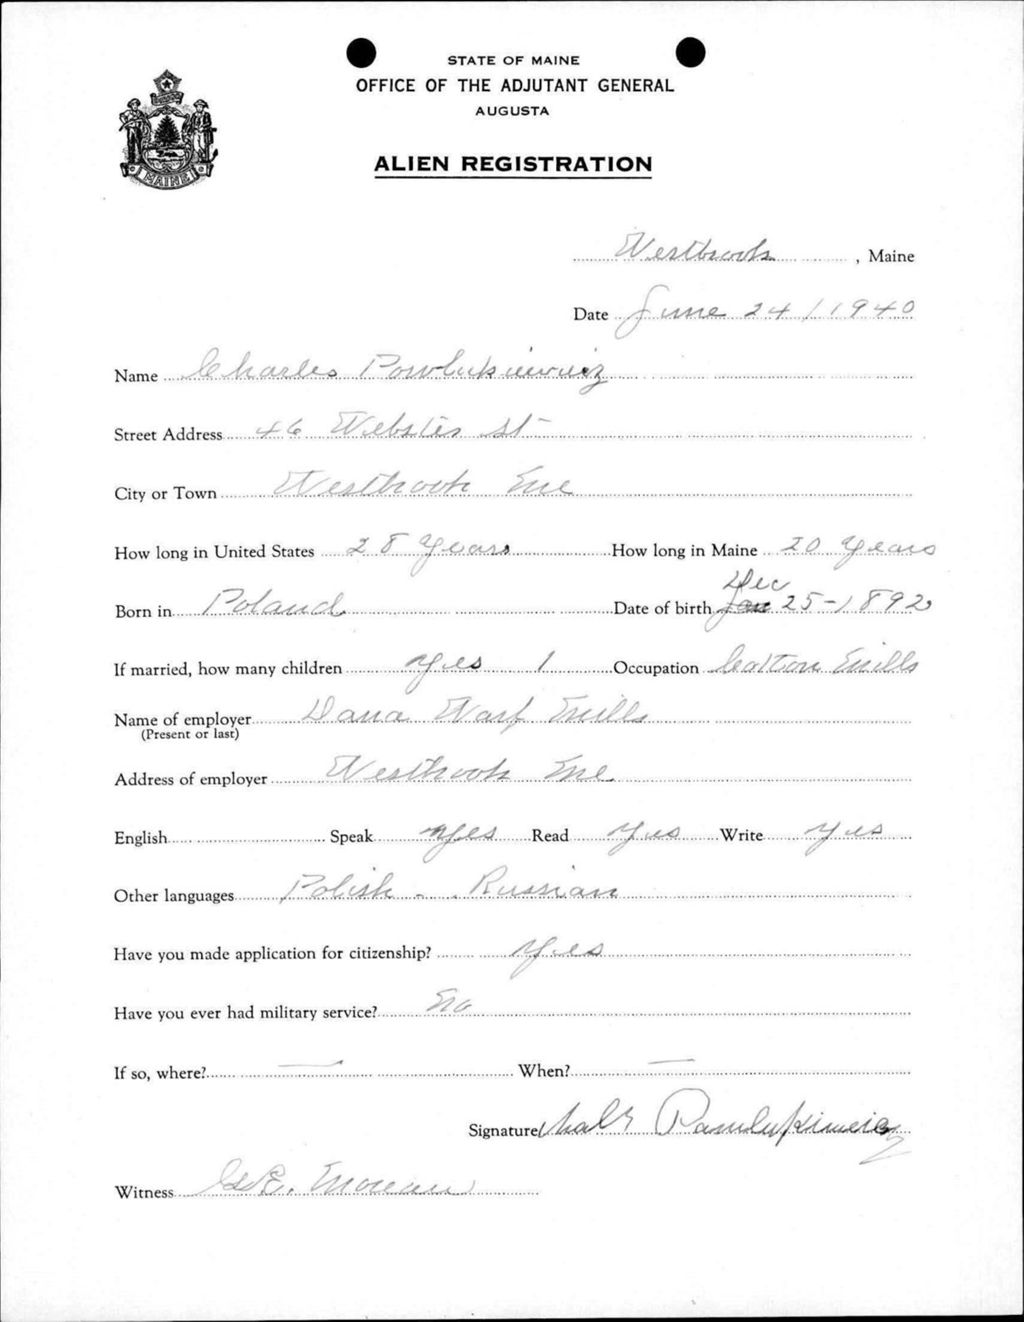 STATE OF MAINE
OFFICE OF THE ADJUTANT GENERAL
AUGUSTA
MAINE
ALIEN REGISTRATION
Westbrook, Maine
Date June 24/1940
Name Charles Powlukiewiez
Street Address 46 Webster St
City or Town Westbrook Me
How long in United States 28 years How long in Maine 20 years
Dec
Born in Poland Date of birth Jan 25-1892
If married, how many children Yes 1 Occupation Cotton Mills
Name of employer Dana Warp Mills
(Present or last)
Address of employer Westbrook Me
English Speak Yes Read Yes Write Yes
Other languages Polish - Russian
Have you made application for citizenship? Yes
Have you ever had military service? No
If so, where? — When? —
Signature
Witness